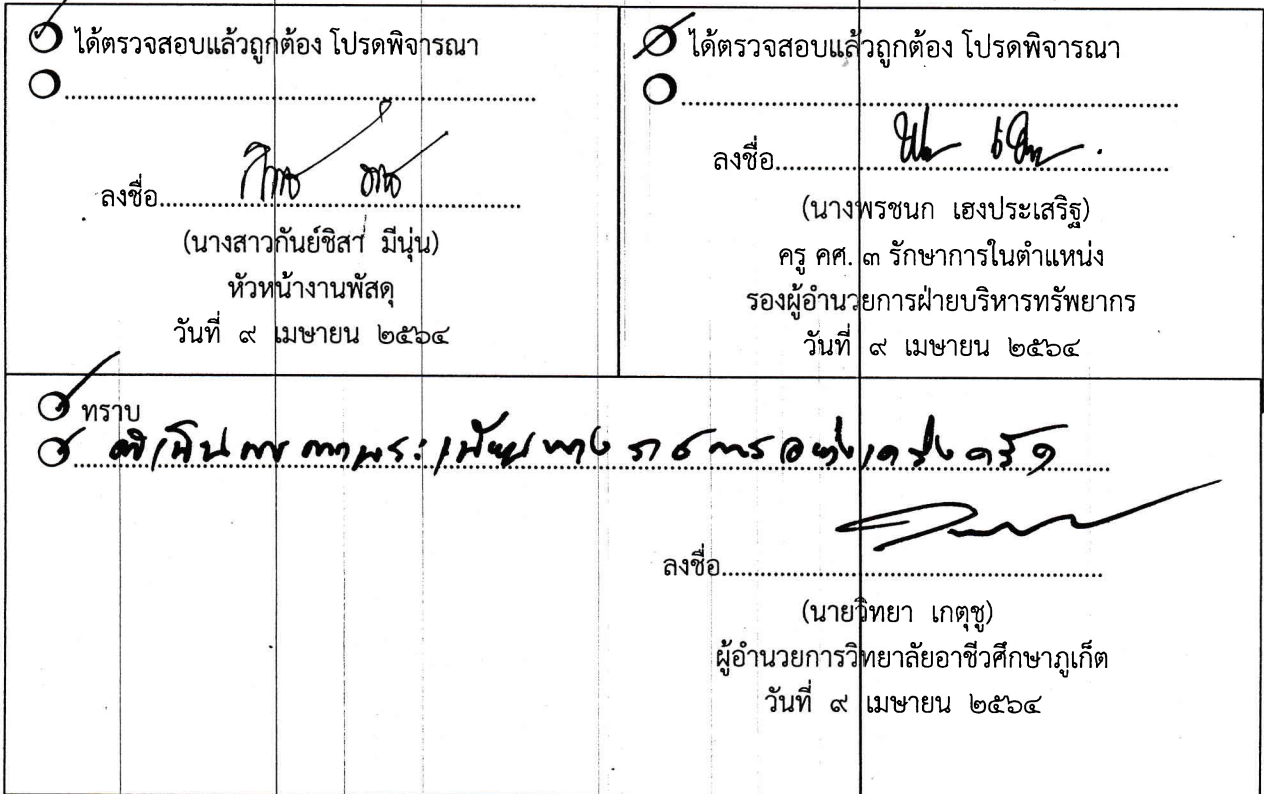 ได้ตรวจสอบแล้วถูกต้อง โปรดพิจารณา
ลงชื่อ
(นางสาวกันย์ชิสา มีนุ่น)
หัวหน้างานพัสดุ
วันที่ ๙ เมษายน ๒๕๖๔
ได้ตรวจสอบแล้วถูกต้อง โปรดพิจารณา
ลงชื่อ
(นางพรชนก เฮงประเสริฐ)
ครู คศ. ๓ รักษาการในตำแหน่ง
รองผู้อำนวยการฝ่ายบริหารทรัพยากร
วันที่ ๙ เมษายน ๒๕๖๔
ทราบ
ระเบียบทางราชการอย่างเคร่งครัด
ลงชื่อ
(นายวิทยา เกตุชู)
ผู้อำนวยการวิทยาลัยอาชีวศึกษาภูเก็ต
วันที่ ๙ เมษายน ๒๕๖๔